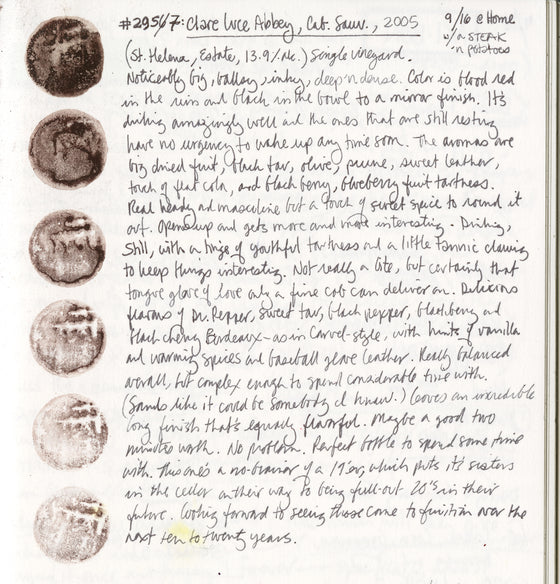 #295/67: Clare Luce Abbey, Cab. Sauv., 2005
9/16 @ Home
w/a STEAK
'n potatoes
(St. Helena, Estate, 13.9% Alc.) Single vineyard.
Noticeably big, ballsy, inky, deep 'n dense. Color is blood red
in the rim and black in the bowl to a mirror finish. It's
drinking amazingly well and the ones that are still resting
have no urgency to wake up any time soon. The aromas are
big dried fruit, black tar, olive, prune, sweet leather,
touch of flat cola, and black berry, blueberry fruit tartness.
Real heady and masculine but a touch of sweet spice to round it
out. Opens up and gets more and more interesting. Drinking,
still, with a tinge of youthful tartness and a little tannic clawing
to keep things interesting. Not really a bite, but certainly that
tongue glove of love only a fine cab can deliver on. Delicious
flavors of Dr. Pepper, sweet tar, black pepper, blackberry and
black cherry Bordeaux—as in Carvel-style, with hints of vanilla
and warming spices and baseball glove leather. Really balanced
overall, but complex enough to spend considerable time with.
(Sounds like it could be somebody I knew.) Leaves an incredible
long finish that's equally flavorful. Maybe a good two
minutes worth. No problem. Perfect bottle to spend some time
with. This one's a no-brainer of a 19er, which puts it's sisters
in the cellar on their way to being full-out 20's in their
future. Looking forward to seeing those come to fruition over the
next ten to twenty years.